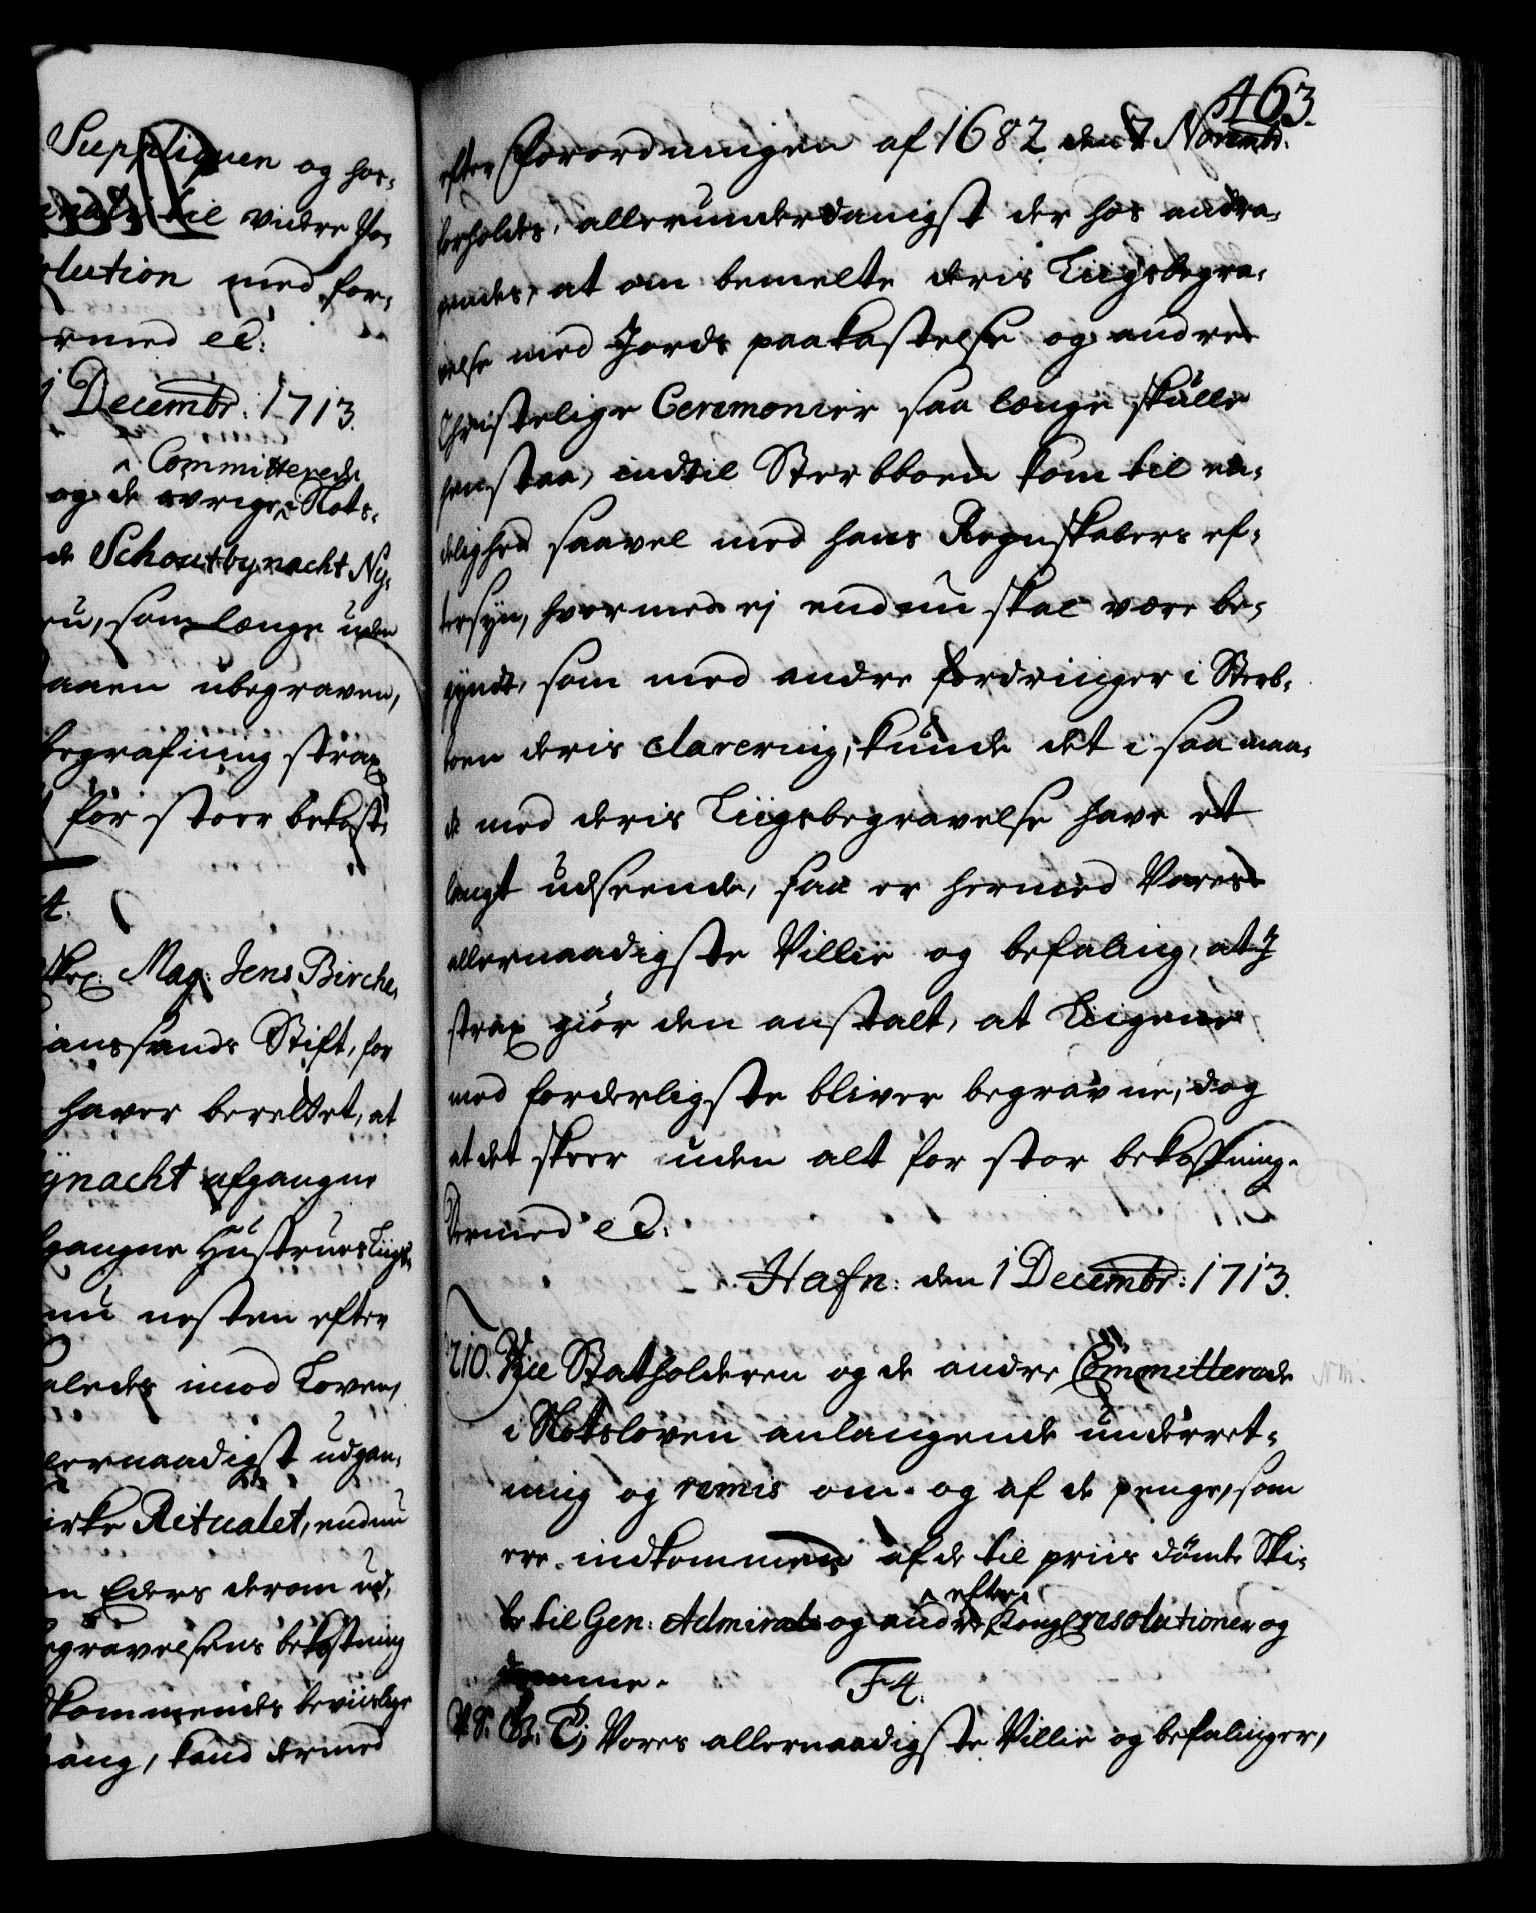 Suppliquen og hos-
til videre Re-
olution med for-
ermed etc:
1 Decembr: 1713.
Committerede
og de øvrige i Slots-
de Schoutbynacht Ny-
en, som længe uden
taaen ubegraven,
begrafning strax
for stoer bekost-
F4.
Mag: Jens Birche-
iansands Stift, for
haver berettet, at
ynacht afgangne
fgangne Hustrues Liigs-
nu nesten efter
aledes imod Loven,
lernaadigst udgan-
irke Ritualet, endnu
en Eders derom ud-
egravelsens bekostning
dkommendes beviislige
gang, kand dermed
463.
efter Forordningen af 1682 den 7 Novembr:
forholdes, allerunderdanigst der hos andra-
gendes, at om bemelte deris Liigsbegra-
velse med Jords paakastelse og andre
Christelige Ceremonier saa længe skulle
henstaa, indtil Sterbboen kom til en-
delighed saavel med hans Regnskabers ef-
tersyn, hvormed ej endnu skal være be-
gyndt, som med andre fordringer i Sterb-
boen deris clarering, kunde det i saa maa-
de med deris Liigsbegravelse have et
langt udseende, saa er hermed Vores
allernaadigste Villie og befaling, at I
strax giør den anstalt, at Liigene
med forderligste bliver begravne, dog
at det skeer uden alt for stor bekostning.
Dermed etc:
Hafn: den 1 Decembr: 1713.
210. Vice Statholderen og de andre Committerede
i Slotsloven anlangende underret-
ning og remis om og af de penge, som
ere indkommen af de til priis dømte Ski-
be til Gen: Admiral og andre efter Kongl resolutioner og
domme.
F4.
V. S. G. T; Vores allernaadigste Villie og befalinger,